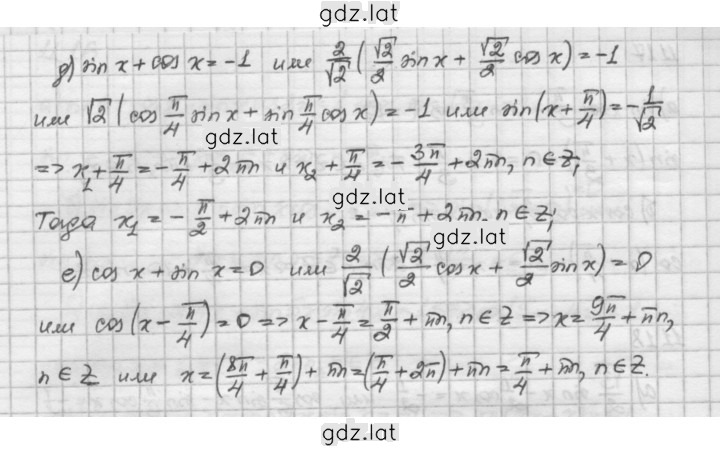 gdz.lat
д) sin x + cos x = -1 или 2/√2 (√2/2 sin x + √2/2 cos x) = -1
или √2 (cos π/4 sin x + sin π/4 cos x) = -1 или sin(x + π/4) = -1/√2
gdz.lat
=> x₁ + π/4 = -π/4 + 2πn и x₂ + π/4 = -3π/4 + 2πn, n ∈ Z;
gdz.lat
Тогда x₁ = -π/2 + 2πn и x₂ = -π + 2πn. n ∈ Z;
gdz.lat
е) cos x + sin x = 0 или 2/√2 (√2/2 cos x + √2/2 sin x) = 0
или cos(x - π/4) = 0 => x - π/4 = π/2 + πn, n ∈ Z => x = 9π/4 + πn,
n ∈ Z или x = (8π/4 + π/4) + πn = (π/4 + 2π) + πn = π/4 + πn, n ∈ Z.
gdz.lat